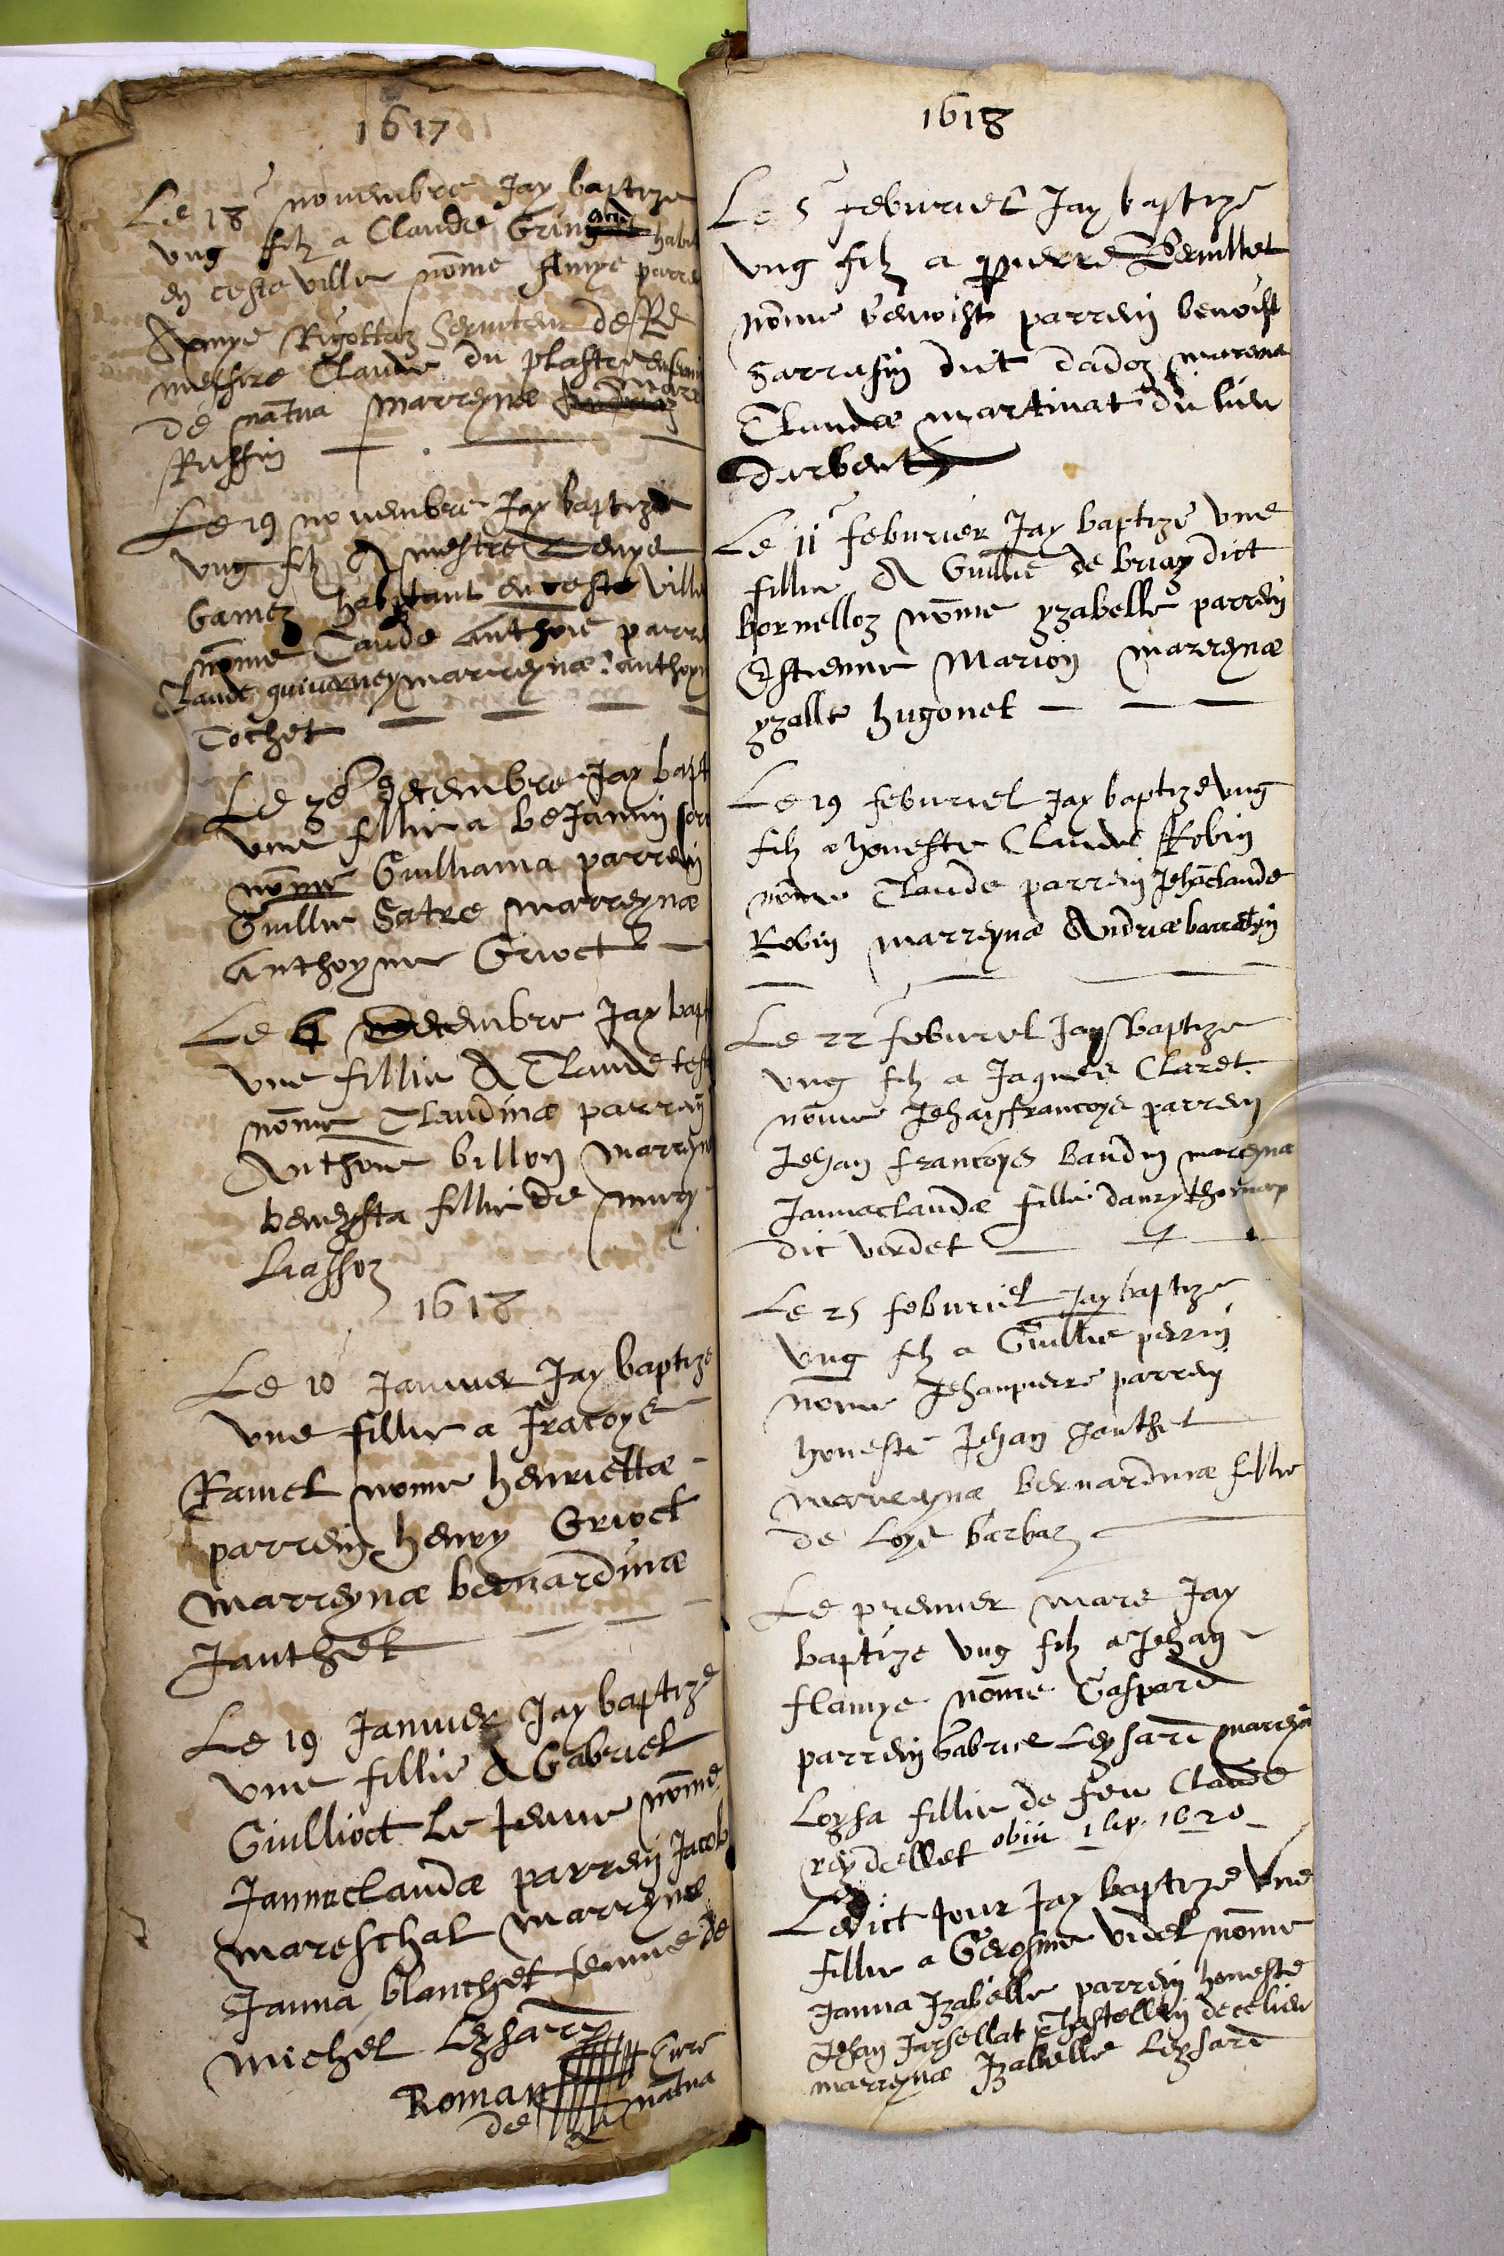 1617
Le 18 novembre Jay baptize
ung filz a Claude Gringard habi
en ceste ville nōme Amye parre
Amye Rigottaz Serviteur de Rd
messire Claude du plastre
de nātua marreynæ Mar
Ruffin
Le 19 novembre Jay baptize
ung filz A mestre Denye
Gamez habitant en ceste ville
nōme Claude Anthoie parre
Claude quiverney marreynæ anthoyn
Cochet
Le 3e decembre Jay bapt
une fillie a beJamin
nōme Guilliama parrein
Guillie Satre marreynæ
Anthoyne Grioct
Le 6 decembre Jay bapt
une fillie A Claude
nōme Claudinæ parrein
Anthoine billon marreyn
beneysta fillie de
Liassoz
1618
Le 10 Janvier Jay baptize
une fillie a fracoys
Ramel nome henriettæ
parrein henry Grioct
marreynæ bernardinæ
Janthet
Le 19 Janvier Jay baptize
une fillie A Gabriel
Guillioct Le Jeune nōme
Jannæclaudæ parrein Jacob
mareschal marreynæ
Janna blanchet femme de
michel Leysard
Roman Curé
de nātua
1618
Le 5 febvrier Jay baptize
ung filz a pierre
nōme benoist parrein benoist
Sarrasin dict dadoz marenæ
Claudæ martinat du lieu
darbent
Le 11 febvrier Jay baptize une
fillie A Guillie de briaz dict
bornelloz nōme yzabelle parrein
Estienne Marion marreynæ
yzalle hugonet
Le 19 febvrier Jay baptize ung
filz a honeste Claude Robin
nōme Claude parrein Jehāclaude
Robin marreynæ Andriæ barratin
Le 22 febvrier Jay baptize
ung filz a Jaques Claret
nōme Jehanfrancoys parrein
Jehan francoys baudin mareyna
Jannaclaudæ fillie
dic verdet
Le 25 febvrier Jay baptize
ung filz a Guillie perrin
nōme Jehanpierre parrein
honeste Jehan Janthet
marreynæ bernardinæ fillie
de Loys barbaz
Le premier mars Jay
baptize ung filz a Jehan
flamye nōme Gaspard
parrein Gabriel Leysard mareyn
Loysa fillie de feu Claude
reydellet obiit 1 sep. 1620
Ledict Jour Jay baptize une
fillie a Gerosme videt nōme
Janna Jzabelle parrein honeste
Jehan Jarsellat chastellein de ce lieu
marreynæ Jzabelle Leysard